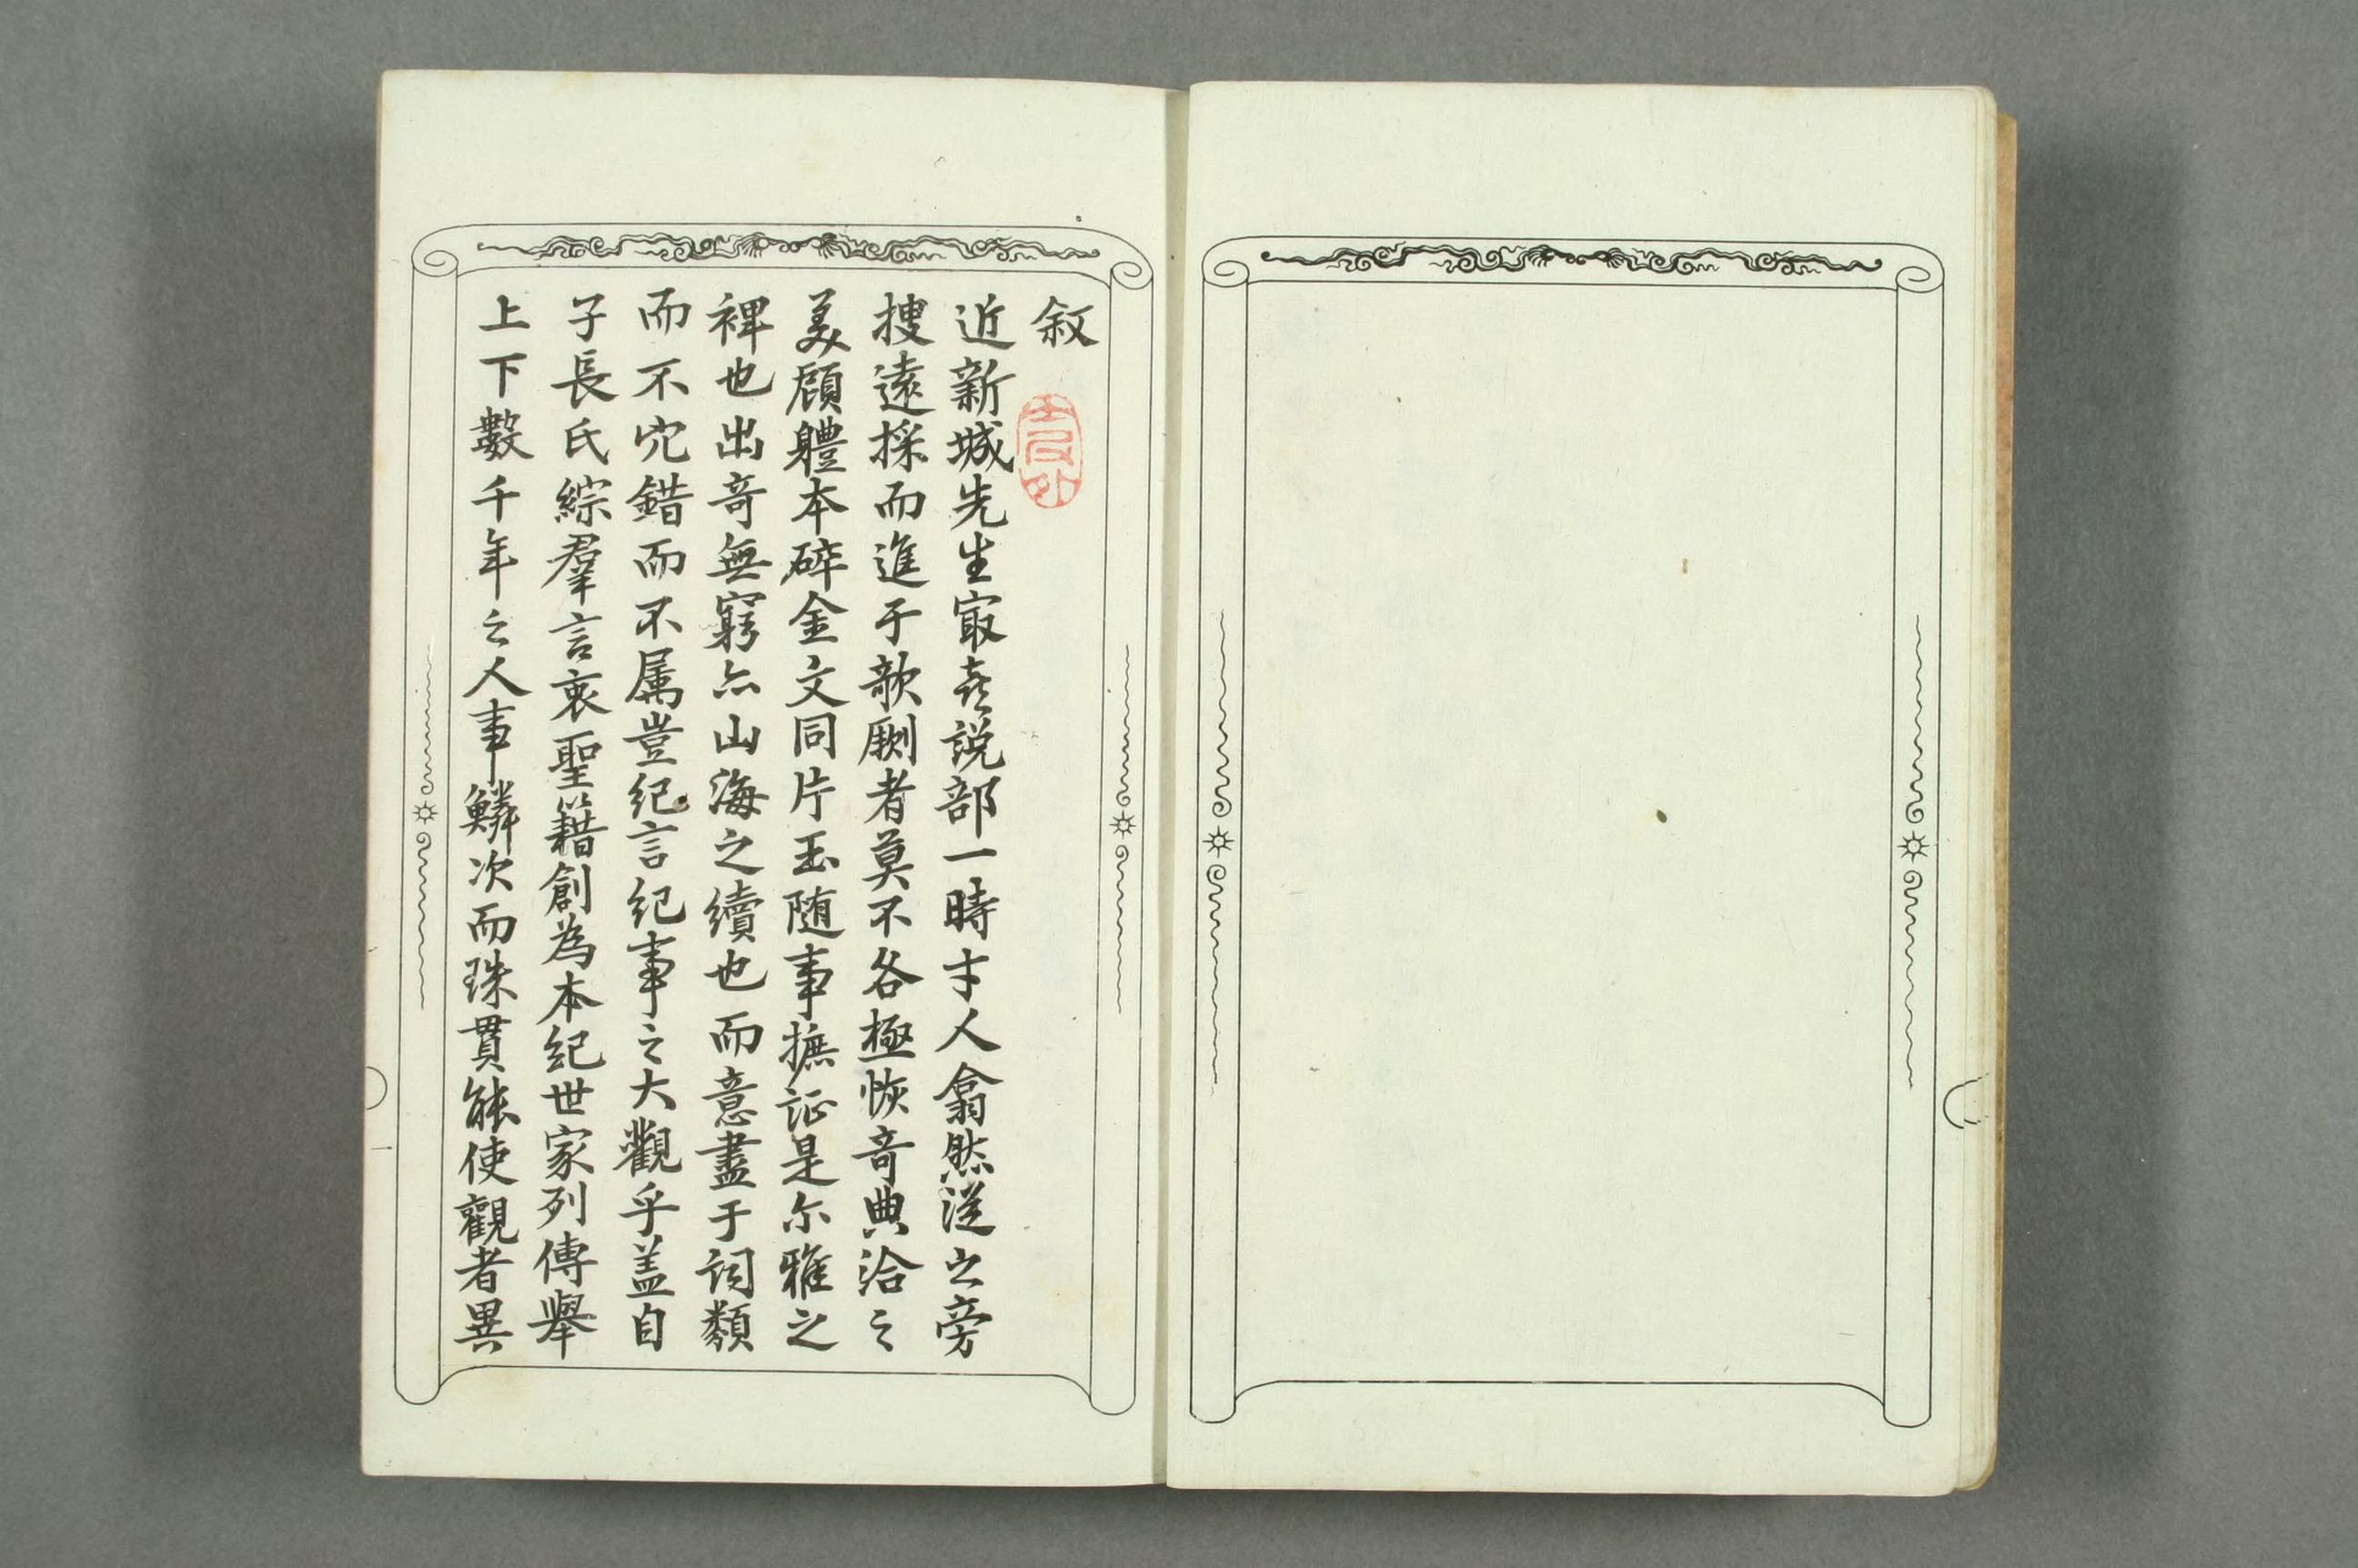 叙
近新城先生㝡㐂説部一時才人翕然從之旁
搜遠採而進于歆劂者莫不各極恢竒典洽之
美顧軆本碎金文同片玉随事摭証是尓雅之
裨也出竒無窮亦山海之續也而意盡于詞類
而不宂錯而不属豈紀言紀事之大觀乎盖自
子長氏綜羣言衷聖籍創為本紀世家列傳舉
上下數千年之人事鱗次而珠貫能使觀者異